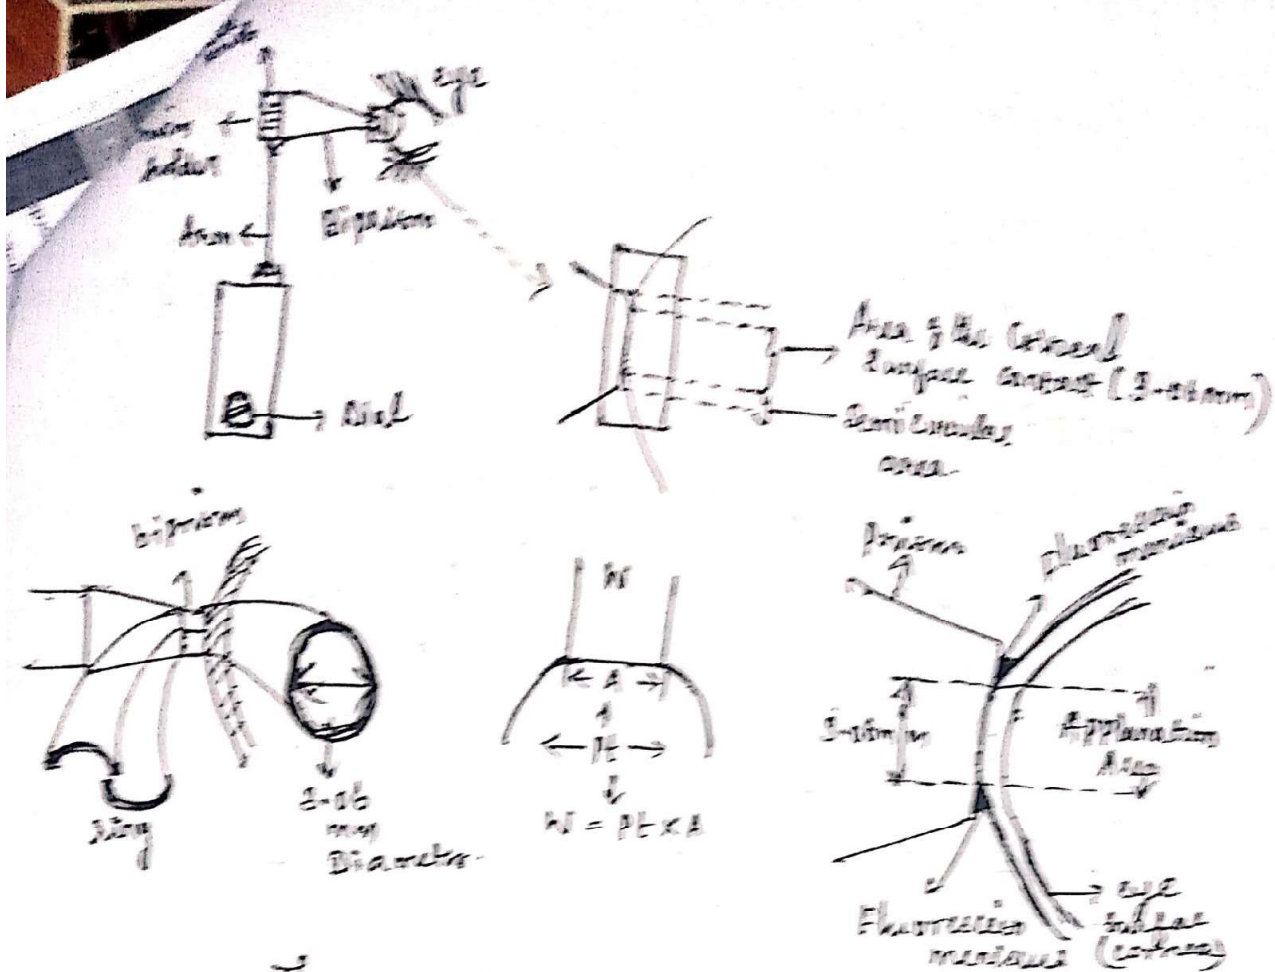 eye
holder
Biprism
Arm
Dial
Area of the Corneal
Surface contact (3-06mm)
Semicircular
area
biprism
ring
3-06
mm
Diameter
W
A
Pt
W = Pt x A
Prism
Fluorescein
meniscus
3-06mm
Applanation
Area
Fluorescein
meniscus
eye
Surface
(cornea)